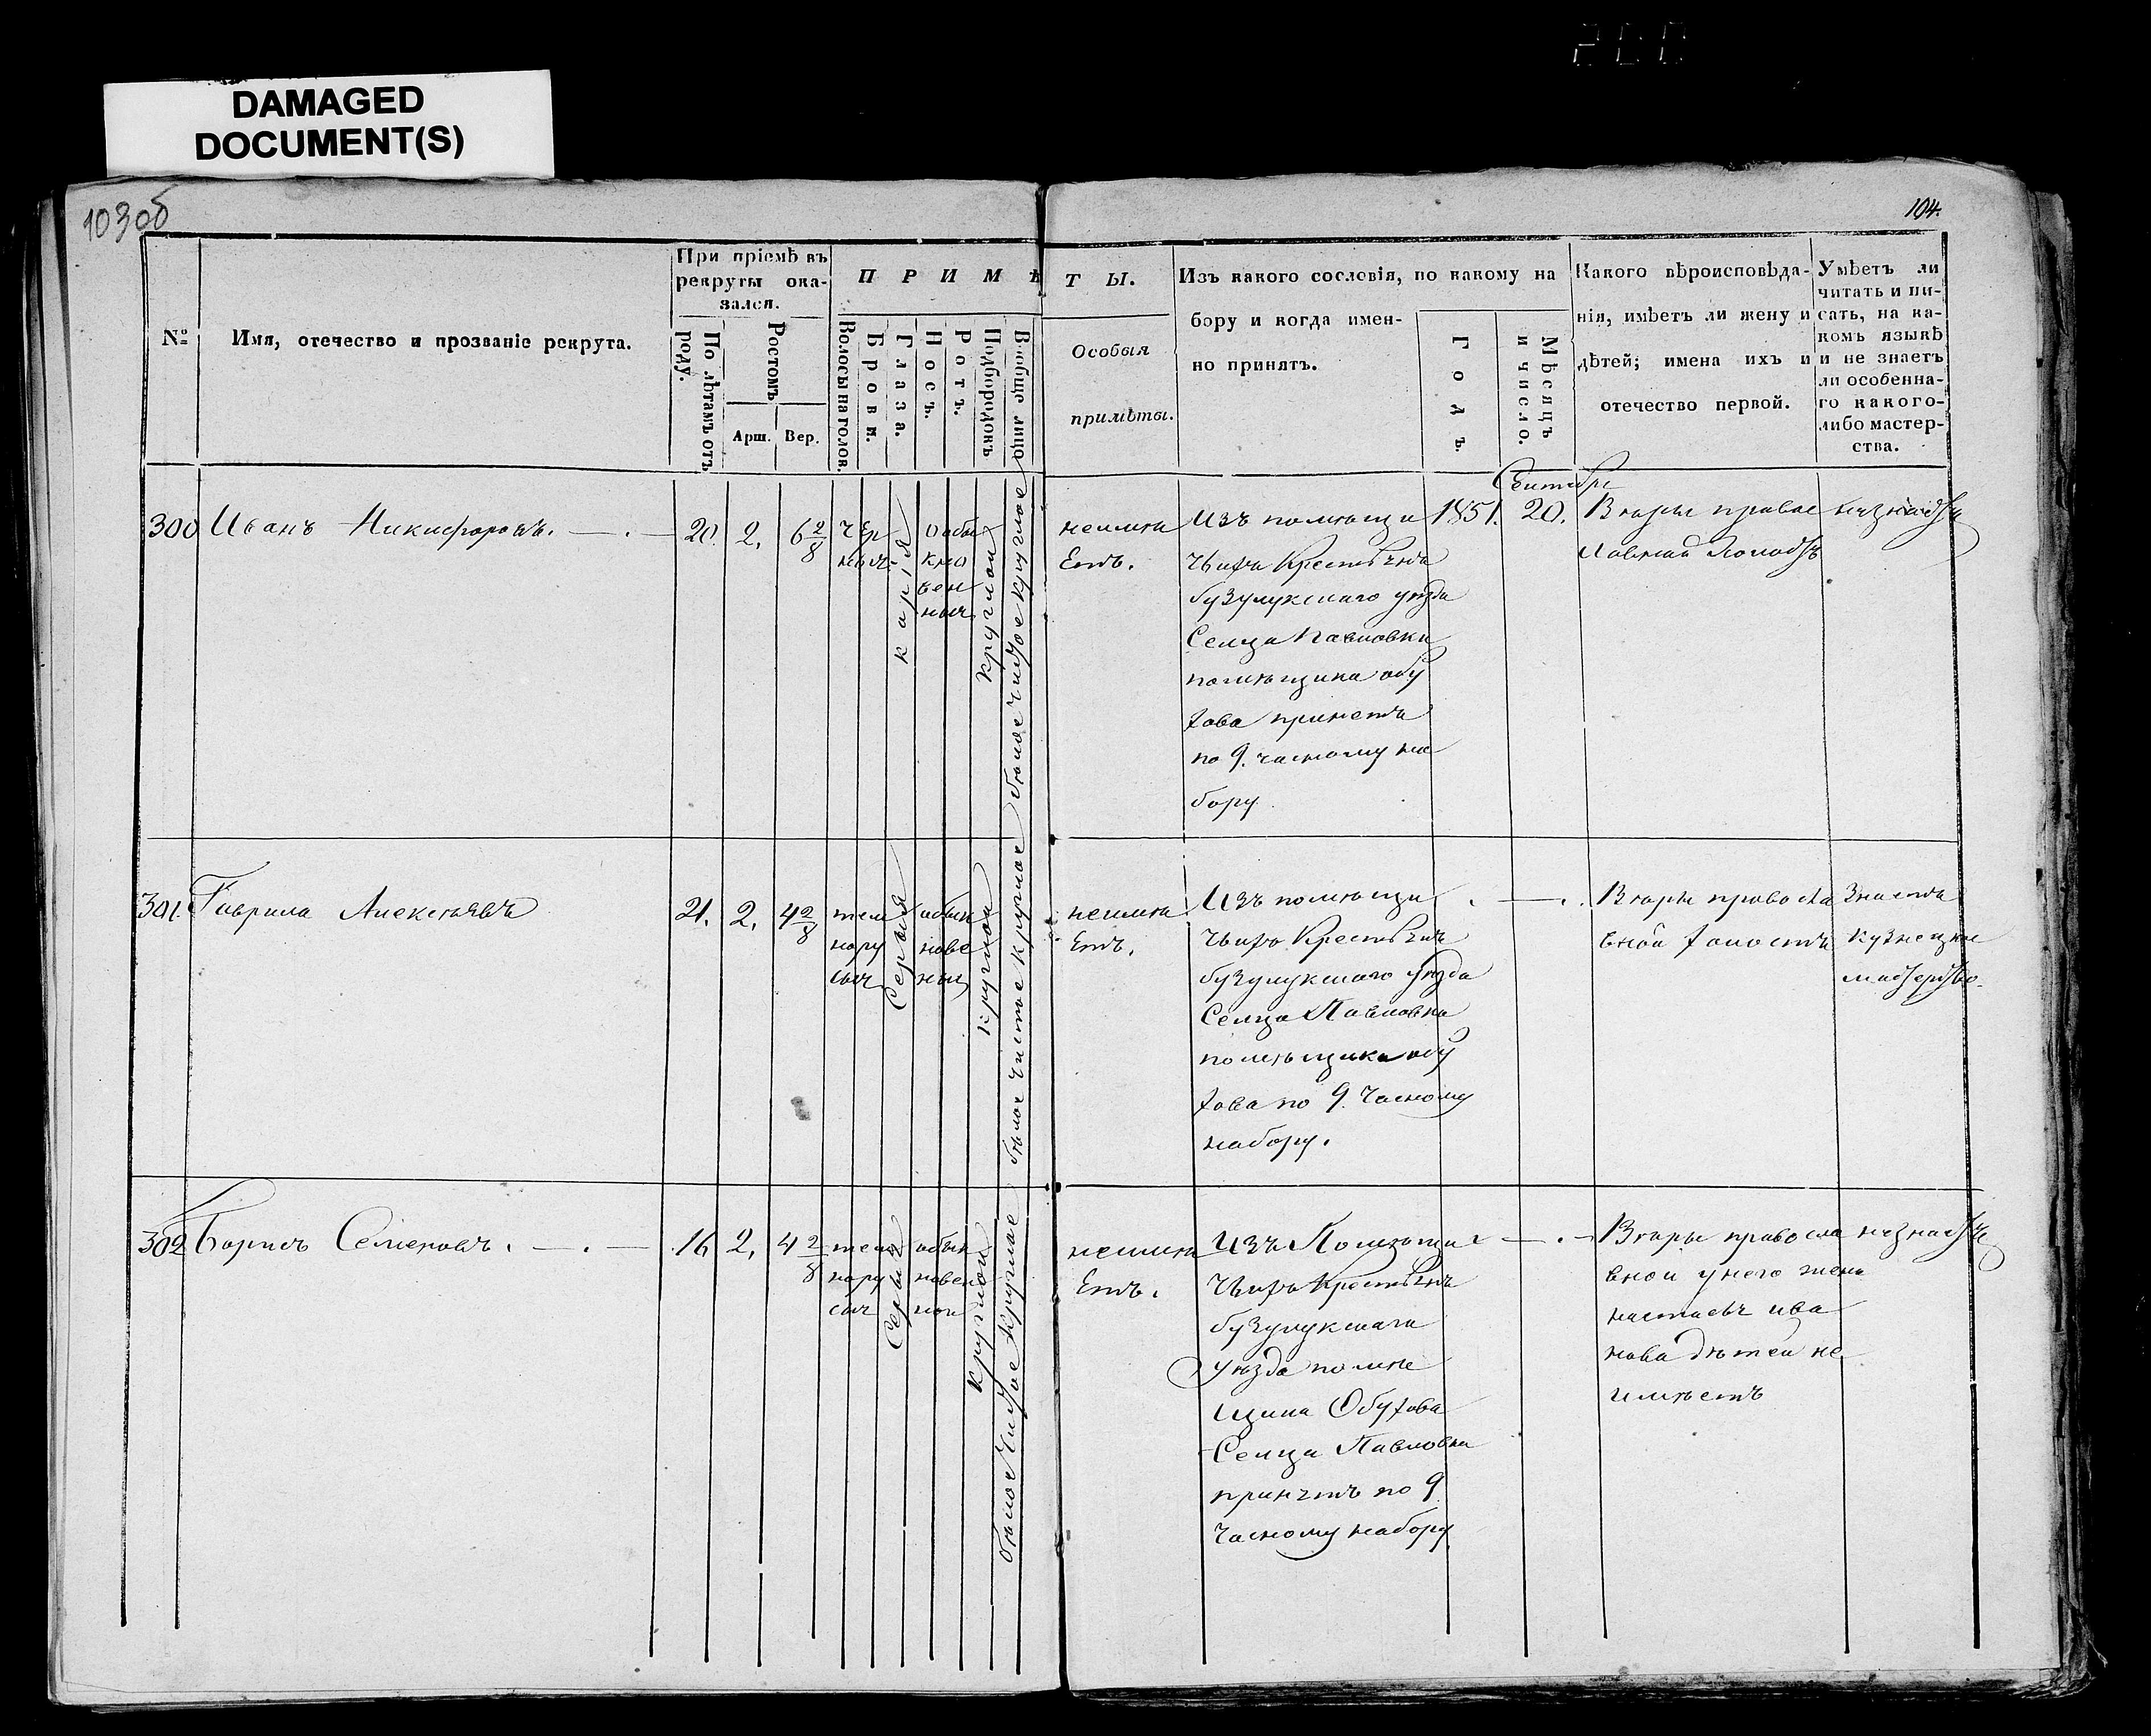 200
DAMAGED
DOCUMENT(S)
103об
104.
№
Имя, отечество и прозваніе рекрута.
При пріемѣ въ
рекруты ока-
зался.
По лѣтамъ отъ
роду.
Ростомъ
Арш.
Вер.
П Р И М Ѣ Т Ы.
Волосы на голов.
Брови.
Глаза.
Носъ.
Ротъ.
Подбородокъ
Вообще лицо
Особыя
примѣты.
Изъ какого сословія, по какому на
бору и когда имен-
но принятъ.
Годъ.
Мѣсяцъ
и число.
Какого вѣроисповѣда-
нія, имѣетъ ли жену и
дѣтей; имена ихъ и
отечество первой.
Умѣетъ ли
читать и пи-
сать, на ка-
комъ языкѣ
и не знаетъ
ли особенна-
го какого-
либо мастер-
ства.
300
Иванъ Никифоровъ.
20.
2.
6 2/8
Чер
ныя
карія
обы
кно
вен
ныя
круглой
бѣлое чистое круглое
неимѣ
Етъ.
Изъ помѣщи
чьихъ Крестьянъ
бузулукскаго уѣзда
Сельца Павловки
помѣщика обу
хова принетъ
по 9. часному на
бору.
1851.
Сентябре
20.
Вѣры правос
лавной холостъ
незнаетъ
301.
Гаврила Алексѣевъ
21.
2.
4 2/8
тем
нору
сыя
Серыя
обык
нове
ныя
круглой
бѣлое чистое круглое
неимѣ
Етъ.
Изъ помѣщи
чьихъ Крестьянъ
бузулукскаго уѣзда
Сельца Павловка
помѣщика обу
хова по 9. Часному
набору.
Вѣры правосла
вной холостъ
Знаетъ
кузнецкое
мастерство.
302
Борисъ Семеновъ.
16
2.
4 2/8
тем
нору
сыя
Серыя
обык
новен
ной
круглой
бѣлое чистое круглое
неимѣ
Етъ.
Изъ Помѣщи
Чьихъ Крестьянъ
бузулукскаго
уѣзда помѣ
щика Обухова
Сельца Павловки
принятъ по 9
Часному набору
Вѣры правосла
вной у него жена
настасья ива
нова дѣтей не
имѣетъ
незнаетъ